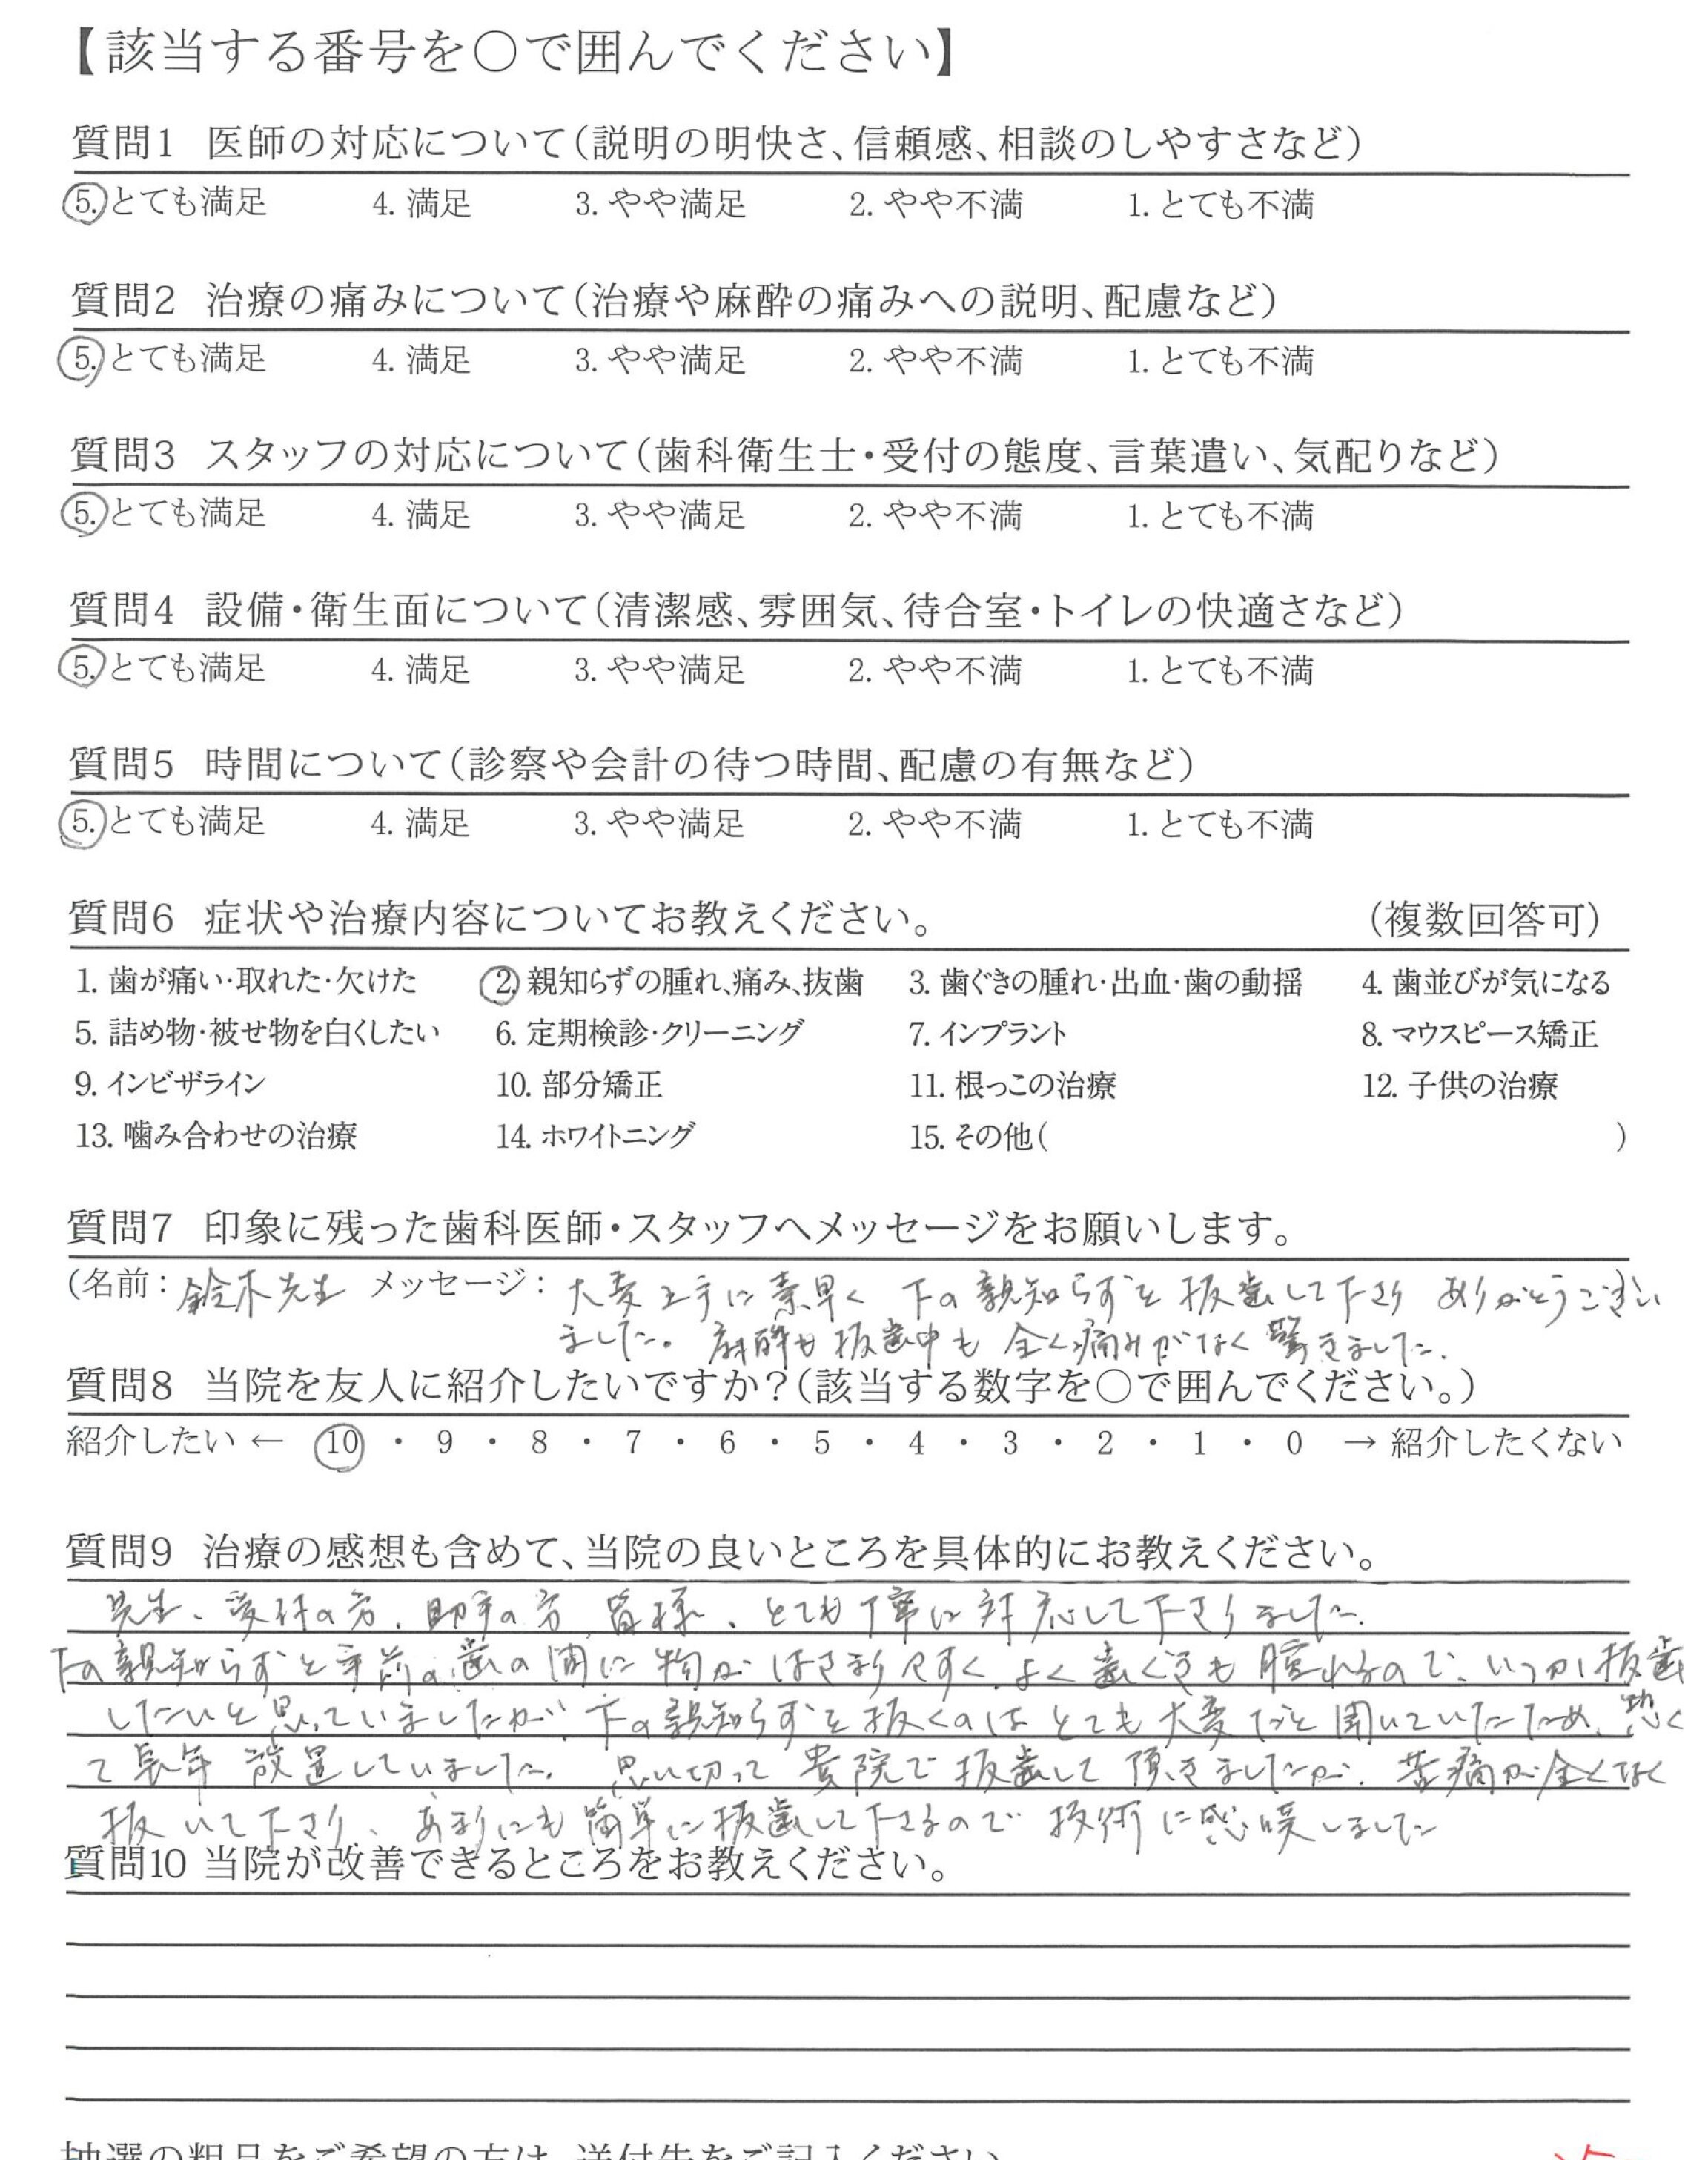 【該当する番号を○で囲んでください】
質問1 医師の対応について(説明の明快さ、信頼感、相談のしやすさなど)
5. とても満足 4. 満足 3. やや満足 2. やや不満 1. とても不満
質問2 治療の痛みについて(治療や麻酔の痛みへの説明、配慮など)
5. とても満足 4. 満足 3. やや満足 2. やや不満 1. とても不満
質問3 スタッフの対応について(歯科衛生士・受付の態度、言葉遣い、気配りなど)
5. とても満足 4. 満足 3. やや満足 2. やや不満 1. とても不満
質問4 設備・衛生面について(清潔感、雰囲気、待合室・トイレの快適さなど)
5. とても満足 4. 満足 3. やや満足 2. やや不満 1. とても不満
質問5 時間について(診察や会計の待つ時間、配慮の有無など)
5. とても満足 4. 満足 3. やや満足 2. やや不満 1. とても不満
質問6 症状や治療内容についてお教えください。 (複数回答可)
1. 歯が痛い・取れた・欠けた 2. 親知らずの腫れ、痛み、抜歯 3. 歯ぐきの腫れ・出血・歯の動揺 4. 歯並びが気になる
5. 詰め物・被せ物を白くしたい 6. 定期検診・クリーニング 7. インプラント 8. マウスピース矯正
9. インビザライン 10. 部分矯正 11. 根っこの治療 12. 子供の治療
13. 噛み合わせの治療 14. ホワイトニング 15. その他( )
質問7 印象に残った歯科医師・スタッフへメッセージをお願いします。
(名前: 鈴木先生 メッセージ: 大変上手に素早く 下の親知らずを抜歯して下さり ありがとうござい
ました。麻酔も抜歯中も全く痛みがなく驚きました。
質問8 当院を友人に紹介したいですか?(該当する数字を○で囲んでください。)
紹介したい ← 10 ・ 9 ・ 8 ・ 7 ・ 6 ・ 5 ・ 4 ・ 3 ・ 2 ・ 1 ・ 0 → 紹介したくない
質問9 治療の感想も含めて、当院の良いところを具体的にお教えください。
先生、受付の方、助手の方 皆様、とても丁寧に対応して下さりました。
下の親知らずと手前の歯の間に物がはさまりやすく、よく歯ぐきも腫れるので、いつか抜歯
したいと思っていましたが、下の親知らずを抜くのはとても大変だと聞いていたため、恐く
て長年放置していました。思い切って貴院で抜歯して頂きましたが、苦痛が全くなく
抜いて下さり、あまりにも簡単に抜歯して下さるので 技術に感嘆しました
質問10 当院が改善できるところをお教えください。
抽選の粗品をご希望の方は、送付先をご記入ください